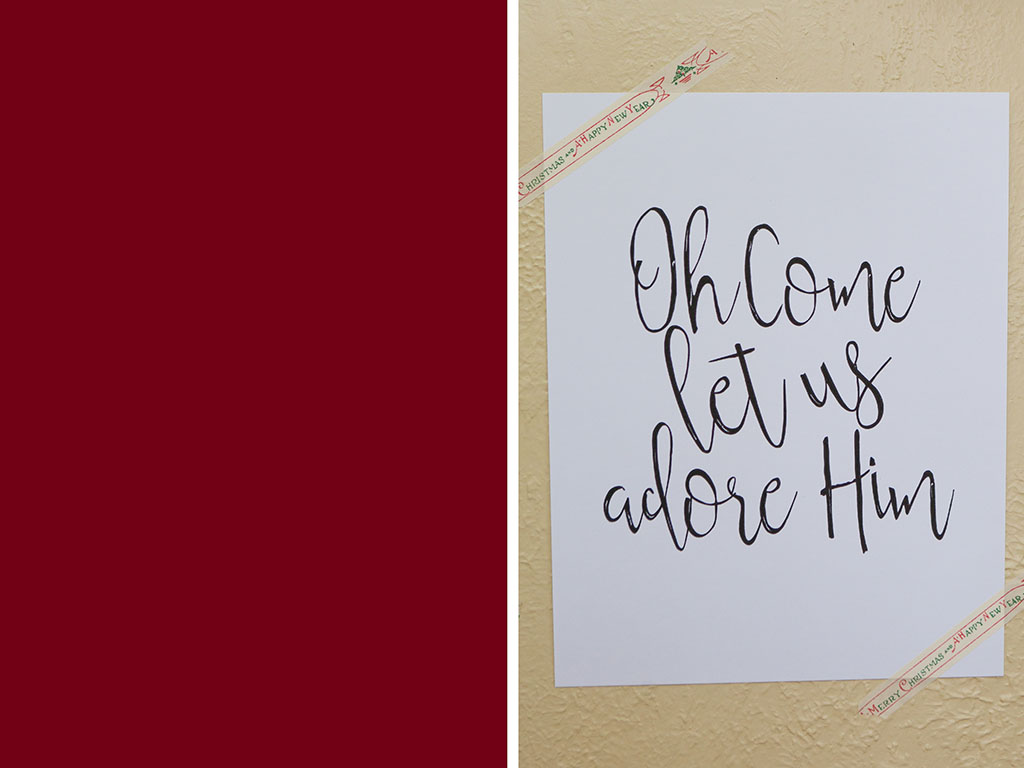 Christmas and A Happy New Year
Oh Come
let us
adore Him
Merry Christmas and A Happy New Year